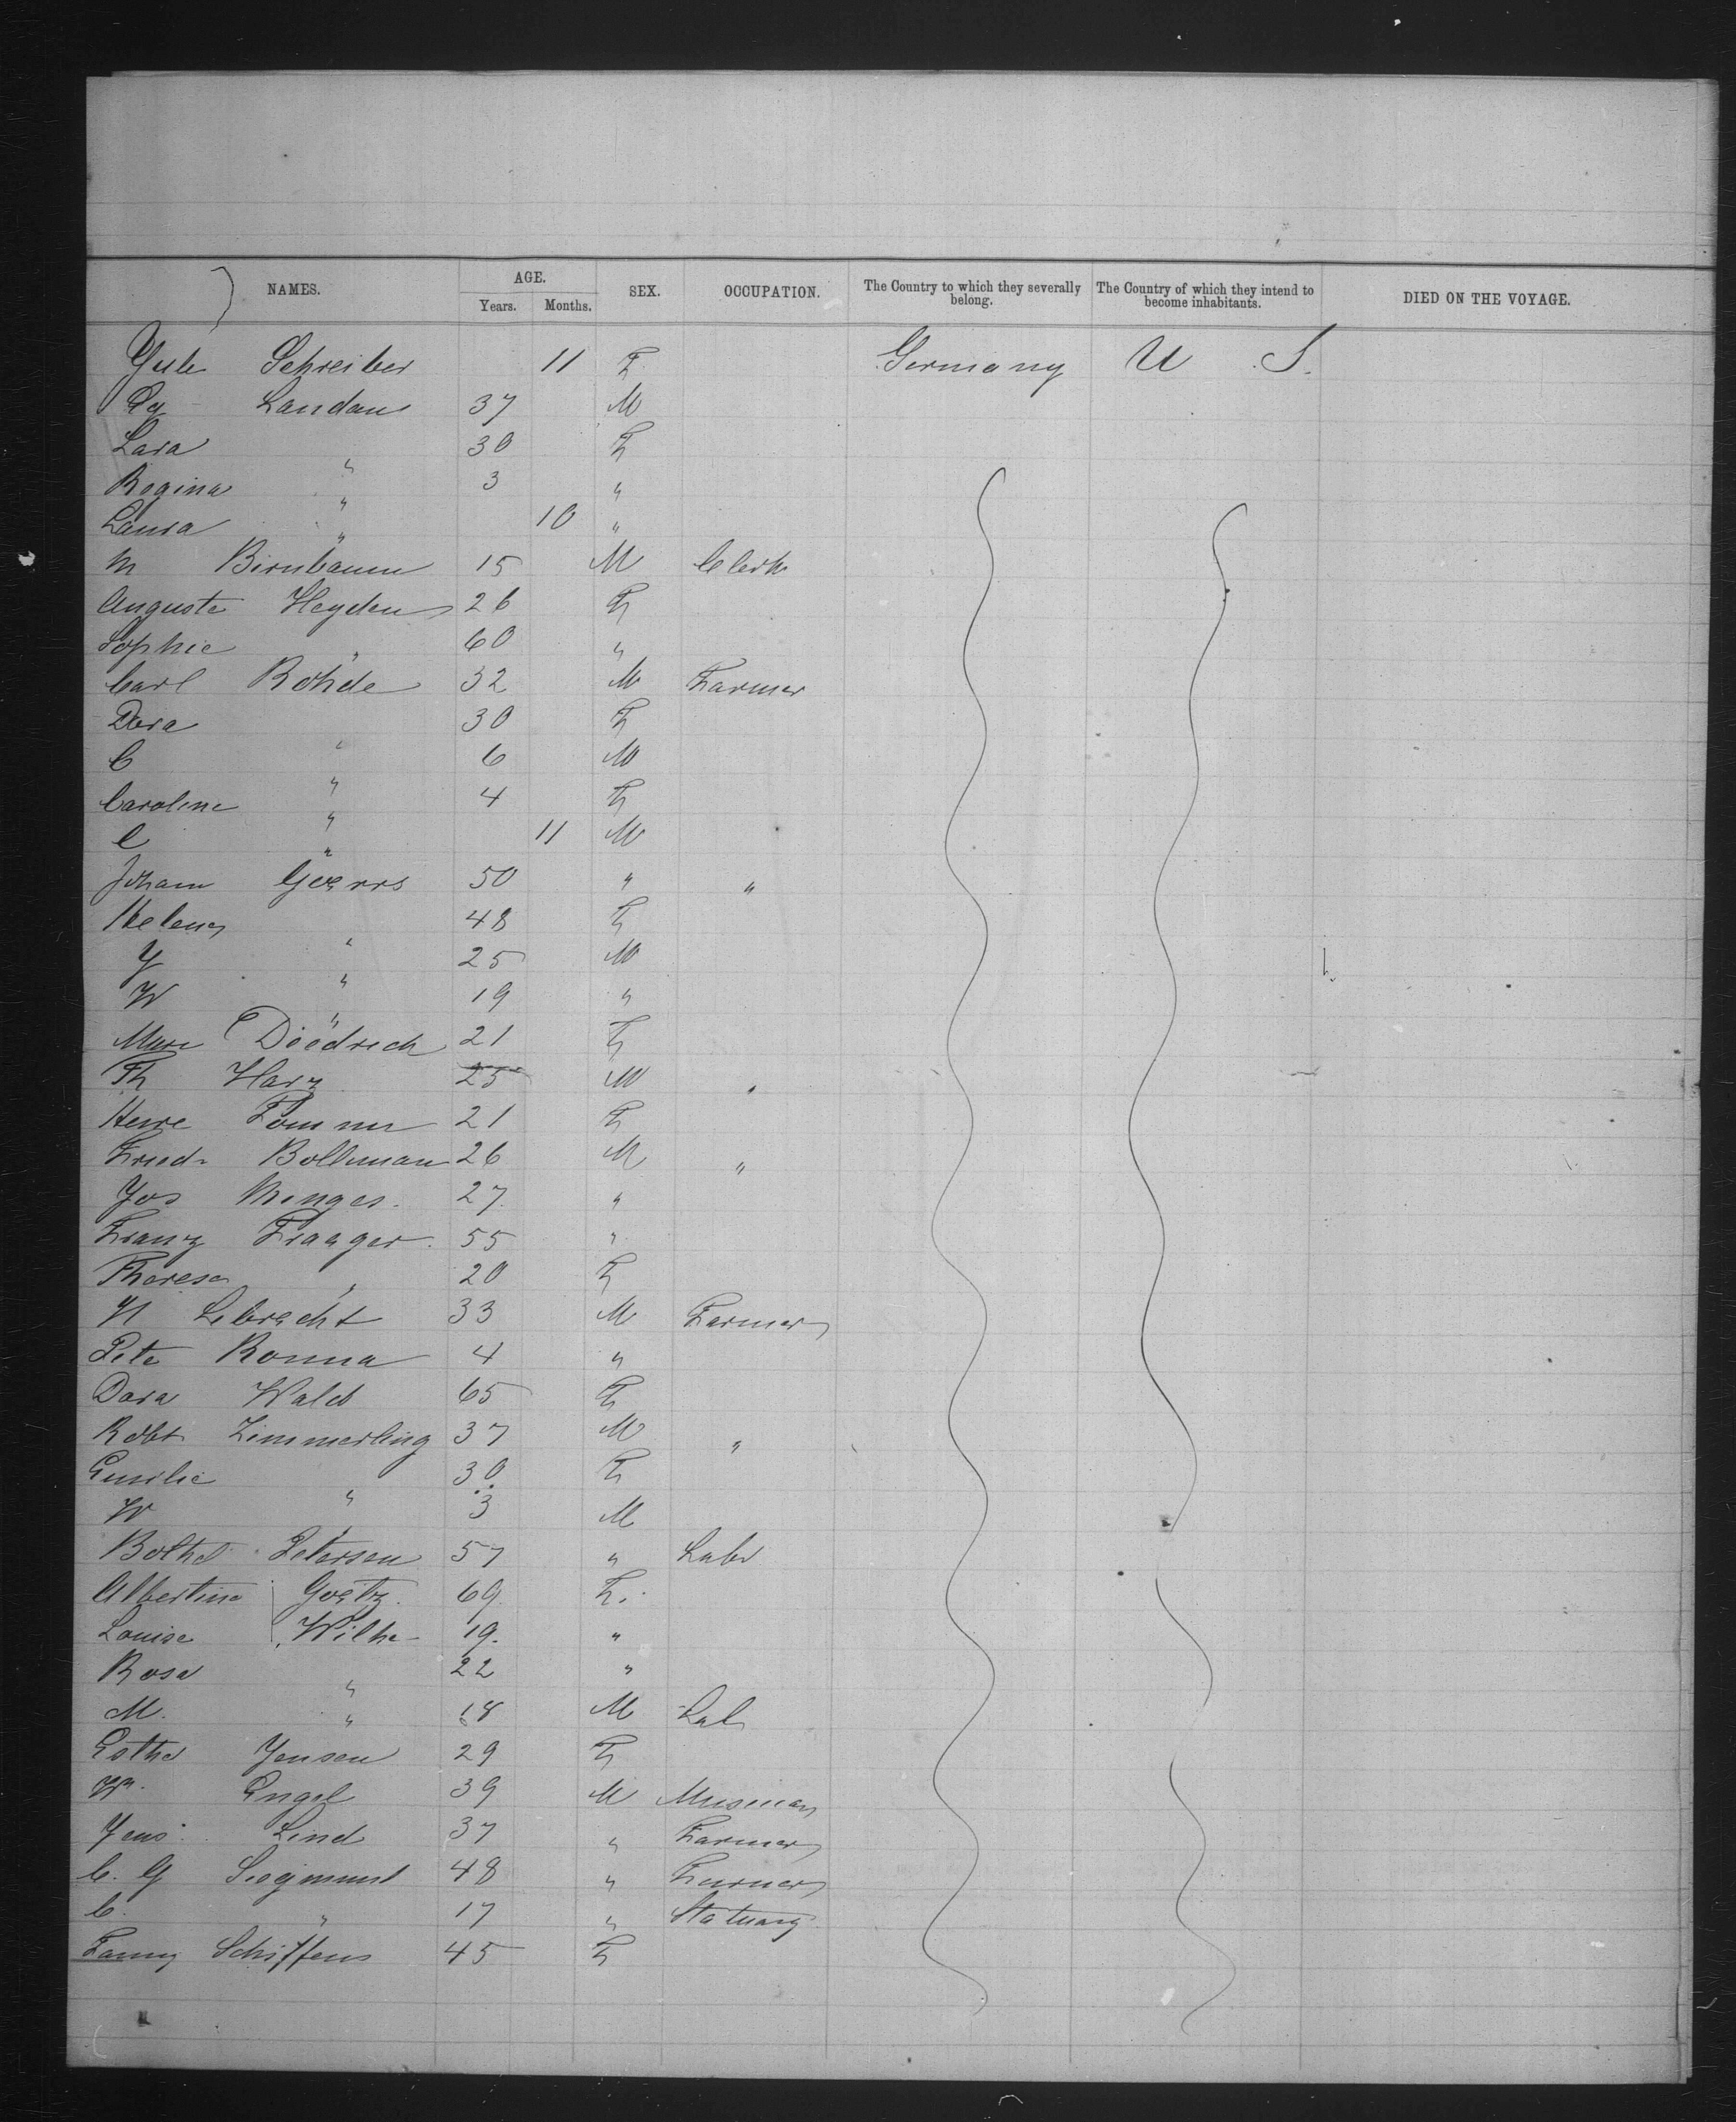 NAMES. AGE. SEX. OCCUPATION. The Country to which they severally belong. The Country of which they intend to become inhabitants. DIED ON THE VOYAGE.
Years. Months.
Schreiber 11 F Germany U S.
Landau 37 M
Sara 30 F
Regina " 3 "
Laura " 10 "
M Birnbaum 15 M Clerk
Auguste Heyden 26 F
Sophie " 60 "
Carl Rohde 32 M Farmer
Dora " 30 F
C " 6 M
Caroline " 4 F
C " 11 M
Johann Goerrs 50 " "
Helena " 48 F
J " 25 M
W " 19 "
Marie Diedrich 21 F
Th Harz 25 M "
Pommer 21 F
Friedr Bollman 26 M "
Jos Menges. 27 "
Franz 55 "
Therese " 20 F
H Lebrecht 33 M Farmer
Pete Ronna 4 "
Dora Wald 65 F
Robt Zimmerling 37 M "
Emilie " 30 F
W " 3 M
Petersen 57 " Labr
Albertine Goetz. 69 F.
Louise Wilke 19. "
Rosa " 22 "
M. " 18 M Lab
Esther Jensen 29 F
Wm. Engel 39 M Musician
Jens Lind 37 " Farmer
C. G Siegmund 48 "
C. " 17 " Statuary
Fanny Schiffens 45 F